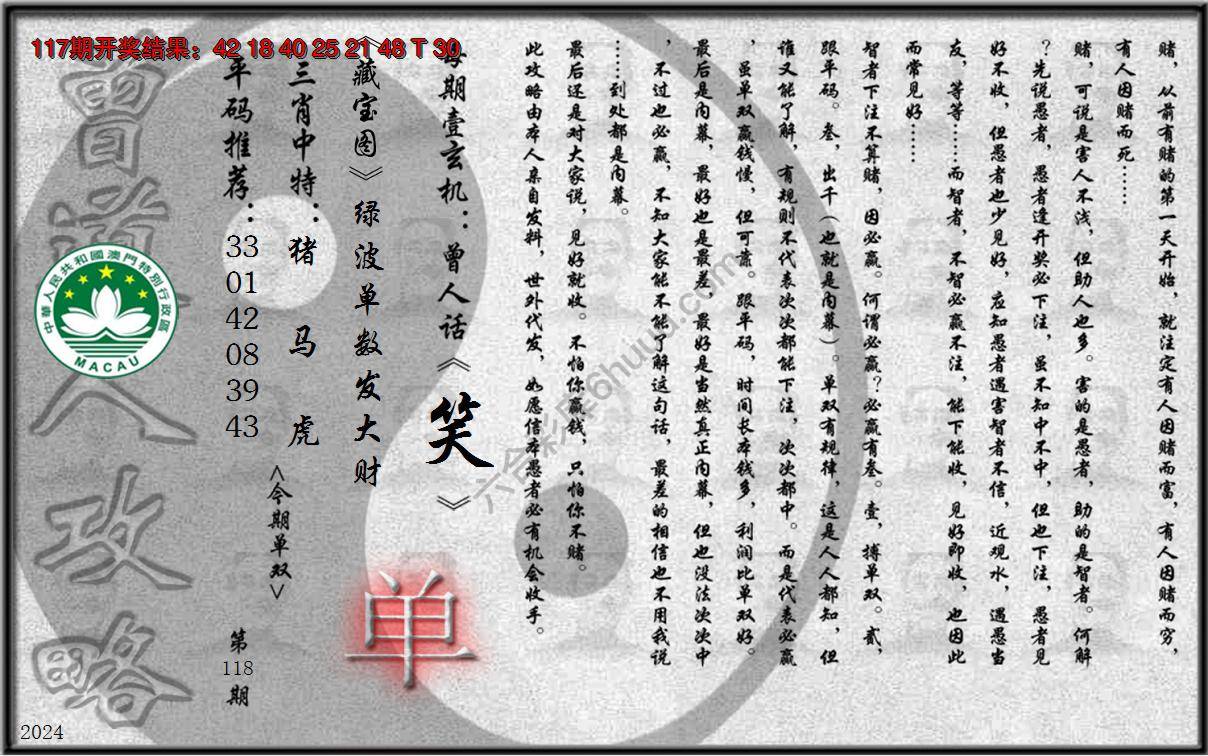 117期开奖结果：42 18 40 25 21 48 T 30
赌，从前有赌的第一天开始，就注定有人因赌而富，有人因赌而穷，
有人因赌而死……
赌，可说是害人不浅，但助人也多。害的是愚者，助的是智者。何解
？先说愚者，愚者逢开奖必下注，虽不知中不中，但也下注，愚者见
好不收，但愚者也少见好，应知愚者遇害智者不信，近观水，遇愚当
友，等等……而智者，不智必赢不注，能下能收，见好即收，也因此
而常见好……
智者下注不算赌，因必赢。何谓必赢？必赢有叁。壹，搏单双。贰，
跟平码。叁，出千（也就是内幕）。单双有规律，这是人人都知，但
谁又能了解，有规则不代表次次都能下注，次次都中。而是代表必赢
，虽单双赢钱慢，但可靠。跟平码，时间长本钱多，利润比单双好。
最后是内幕，最好也是最差，最好是当然真正内幕，但也没法次次中
，不过也必赢，不知大家能不能了解这句话，最差的相信也不用我说
……到处都是内幕。
最后还是对大家说，见好就收。不怕你赢钱，只怕你不赌。
此攻略由本人亲自发料，世外代发，如愿信本愚者必有机会收手。
每期壹玄机：曾人话《笑》
《藏宝图》绿波单数发大财
单
三肖中特：猪 马 虎
<今期单双>
平码推荐：33 01 42 08 39 43
第118期
曾道人攻略
中華人民共和國澳門特別行政區
MACAU
2024